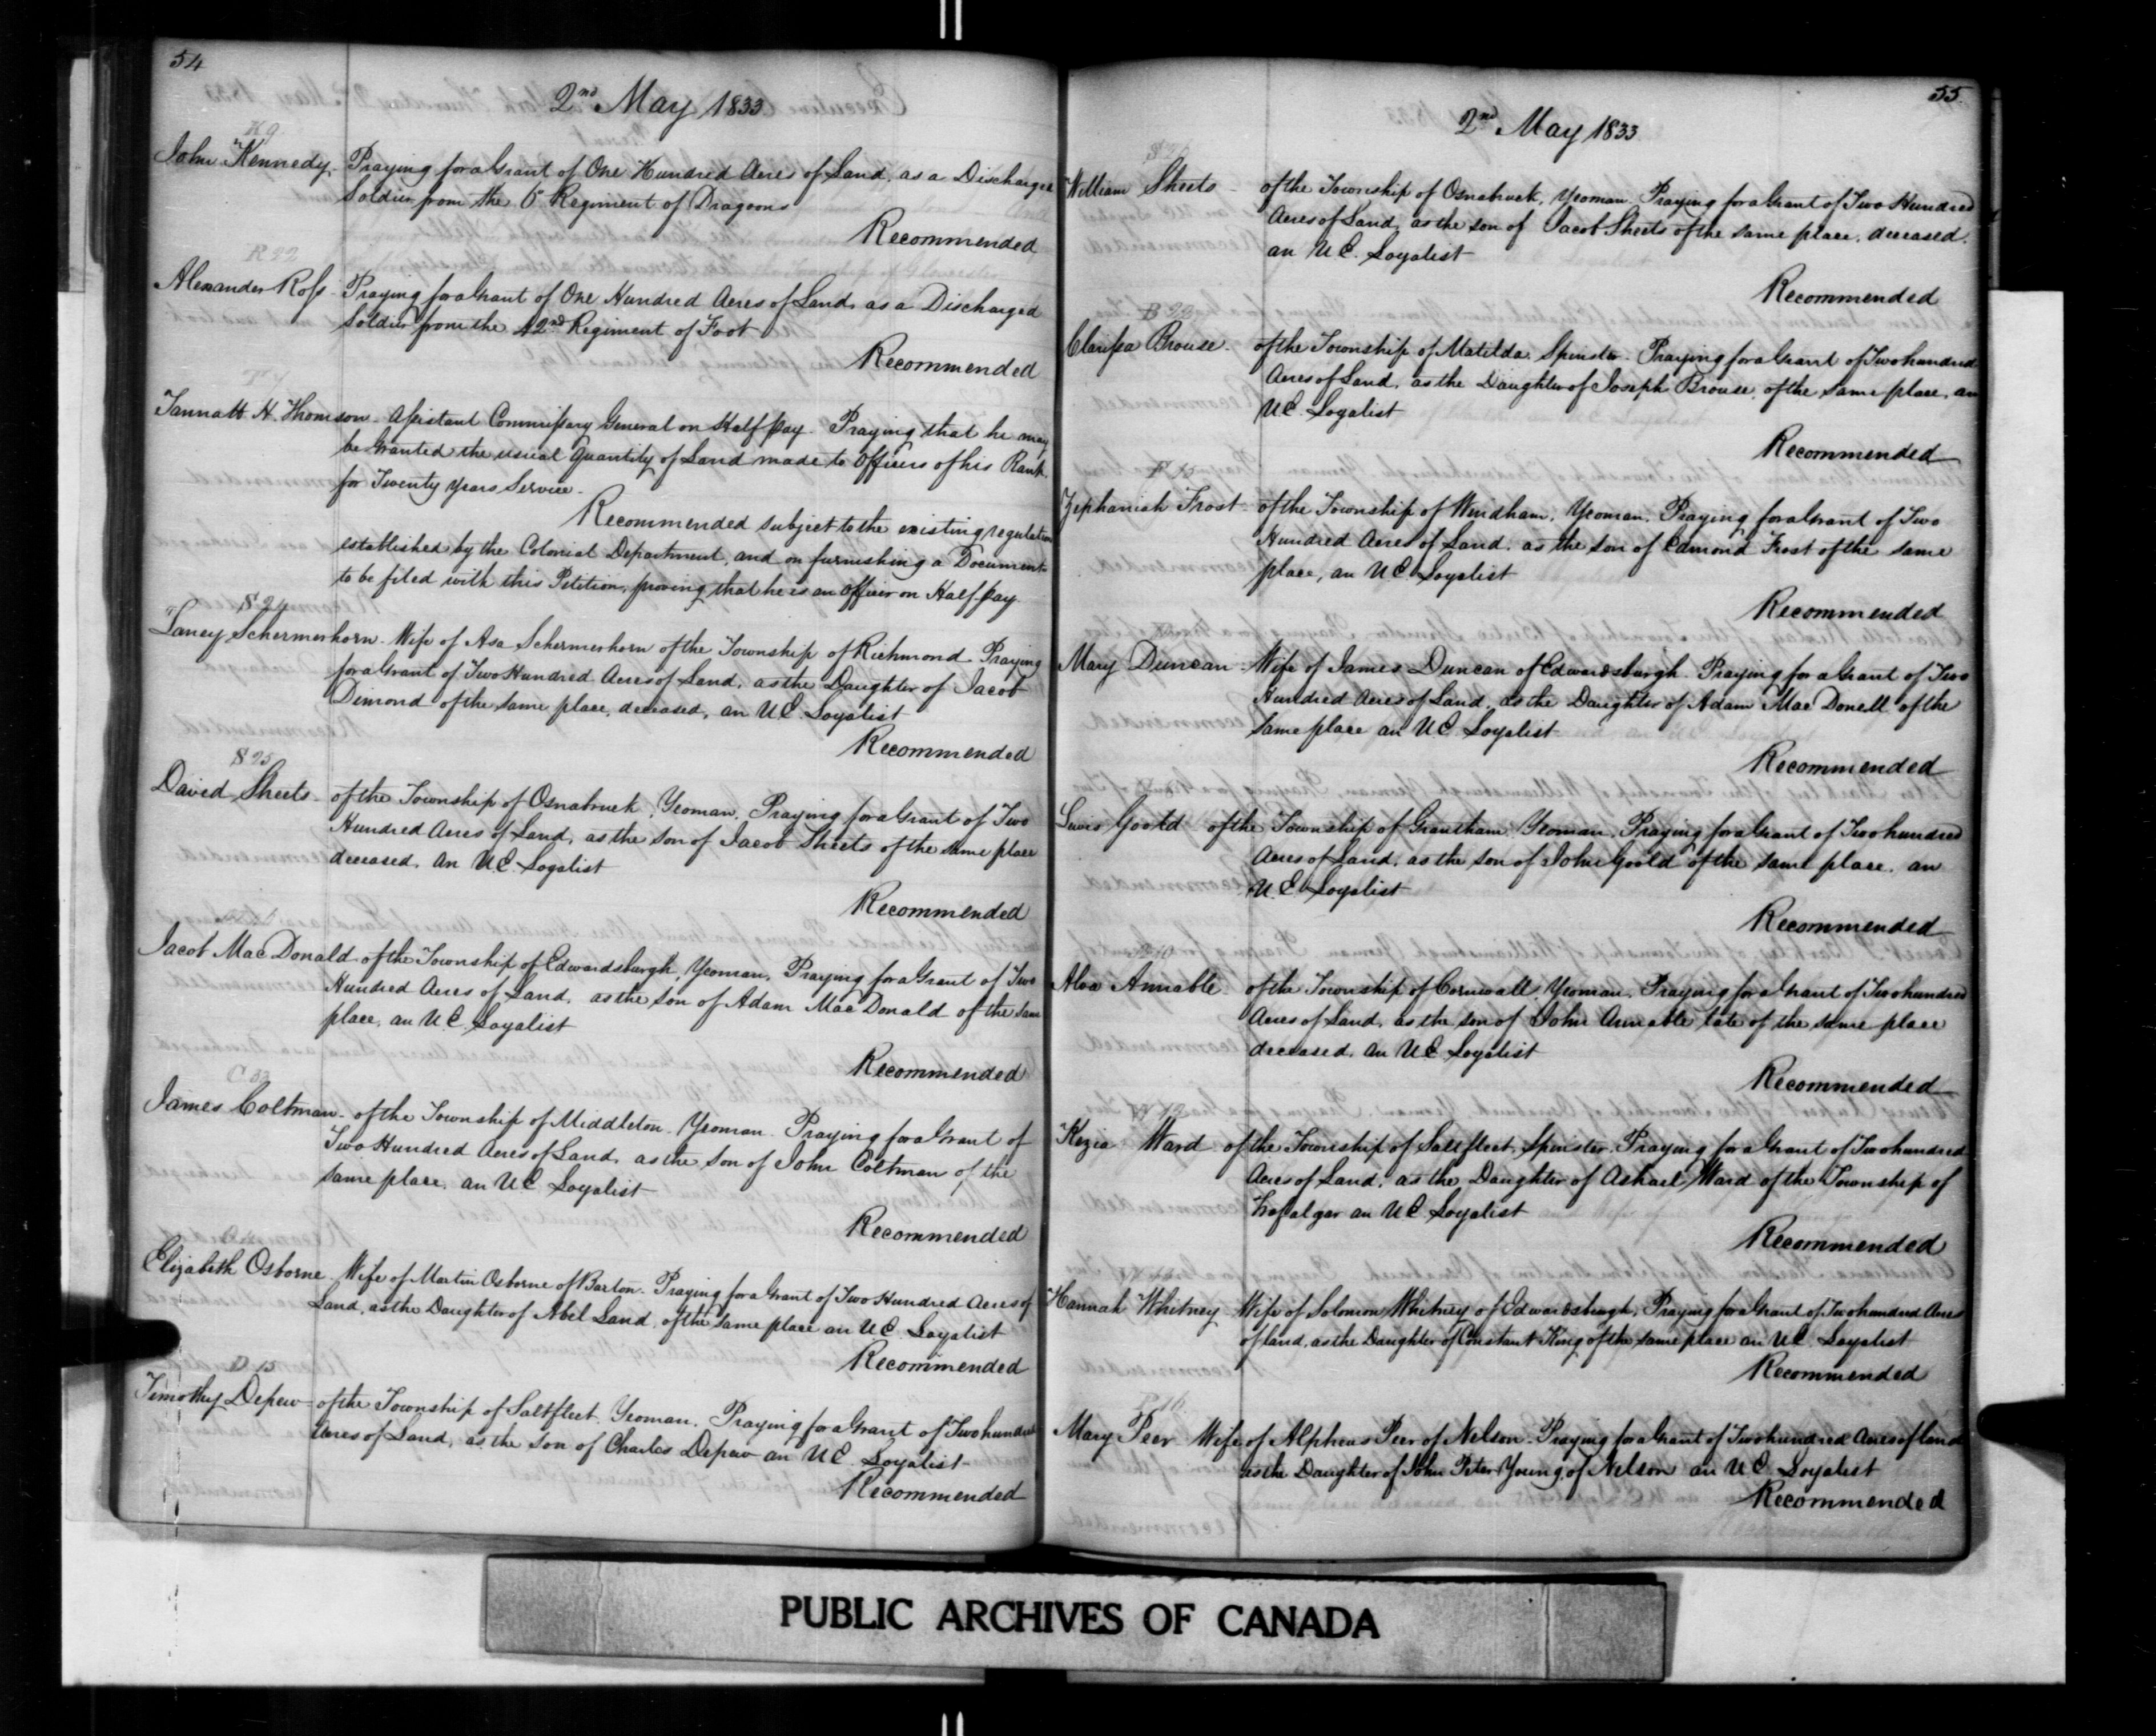 54
2nd May 1833
K 9
John Kennedy - Praying for a Grant of One Hundred Acres of Land, as a Discharged
Soldier from the 6th Regiment of Dragoons
Recommended
R 22
Alexander Ross - Praying for a Grant of One Hundred Acres of Land, as a Discharged
Soldier from the 42nd Regiment of Foot
Recommended
Tannatt H. Thomson - Assistant Commissary General on Half pay - Praying that he may
be Granted the usual Quantity of Land made to Officers of his Rank
for Twenty years Service -
Recommended subject to the existing regulation
established by the Colonial Department, and on furnishing a Document
to be filed with this Petition, proving that he is an Officer on Half pay
S 24
Laney Schermerhorn - Wife of Asa Schermerhorn of the Township of Richmond Praying
for a Grant of Two Hundred Acres of Land, as the Daughter of Jacob
Dimond of the same place, deceased, an U.E. Loyalist
Recommended
S 25
David Sheets - of the Township of Osnabruck, Yeoman, Praying for a Grant of Two
Hundred Acres of Land, as the son of Jacob Sheets of the same place
deceased, an U.E. Loyalist
Recommended
Jacob MacDonald of the Township of Edwardsburgh, Yeoman, Praying for a Grant of Two
Hundred Acres of Land, as the son of Adam MacDonald of the same
place, an U.E. Loyalist
Recommended
C 33
James Coltman - of the Township of Middleton - Yeoman - Praying for a Grant of
Two Hundred Acres of Land, as the son of John Coltman of the
same place, an U.E. Loyalist
Recommended
Elizabeth Osborne - Wife of Martin Osborne of Barton - Praying for a Grant of Two Hundred Acres of
Land, as the Daughter of Abel Land, of the same place an U.E. Loyalist
Recommended
D 15
Timothy Depew - of the Township of Saltfleet, Yeoman, Praying for a Grant of Two hundred
Acres of Land, as the son of Charles Depew an U.E. Loyalist -
Recommended
55
2nd May 1833
S 26
William Sheets - of the Township of Osnabruck, Yeoman - Praying for a Grant of Two Hundred
Acres of Land, as the son of Jacob Sheets of the same place, deceased,
an U.E. Loyalist
Recommended
B 22
Clarissa Brouse - of the Township of Matilda, Spinster - Praying for a Grant of Two hundred
Acres of Land, as the Daughter of Joseph Brouse, of the same place, an
U.E. Loyalist
Recommended
Zephaniah Frost - of the Township of Windham, Yeoman, Praying for a Grant of Two
Hundred Acres of Land, as the son of Edmond Frost of the same
place, an U.E. Loyalist
Recommended
Mary Duncan - Wife of James Duncan of Edwardsburgh - Praying for a Grant of Two
Hundred Acres of Land, as the Daughter of Adam MacDonell of the
same place an U.E. Loyalist -
Recommended
Lewis Goold of the Township of Grantham Yeoman, Praying for a Grant of Two hundred
Acres of Land, as the son of John Goold of the same place, an
U.E. Loyalist
Recommended
Alva Annable - of the Township of Cornwall, Yeoman, Praying for a Grant of Two hundred
Acres of Land, as the son of John Annable late of the same place
deceased, an U.E. Loyalist
Recommended
Kezia Ward - of the Township of Saltfleet, Spinster, Praying for a Grant of Two hundred
Acres of Land, as the Daughter of Ashael Ward of the Township of
Trafalgar an U.E. Loyalist
Recommended
Hannah Whitney - Wife of Solomon Whitney of Edwardsburgh, Praying for a Grant of Two hundred Acres
of land, as the Daughter of Constant King of the same place an U.E. Loyalist
Recommended
P 16
Mary Peer - Wife of Alpheus Peer of Nelson - Praying for a Grant of Two hundred Acres of land
as the Daughter of John Peter Young of Nelson an U.E. Loyalist
Recommended
PUBLIC ARCHIVES OF CANADA